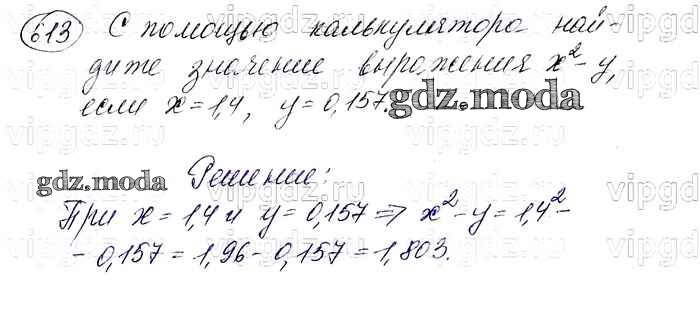 613 С помощью калькулятора най-
дите значение выражения x² - y,
если x = 1,4, y = 0,157. gdz.moda
gdz.moda Решение:
При x = 1,4 и y = 0,157 => x² - y = 1,4² -
- 0,157 = 1,96 - 0,157 = 1,803.